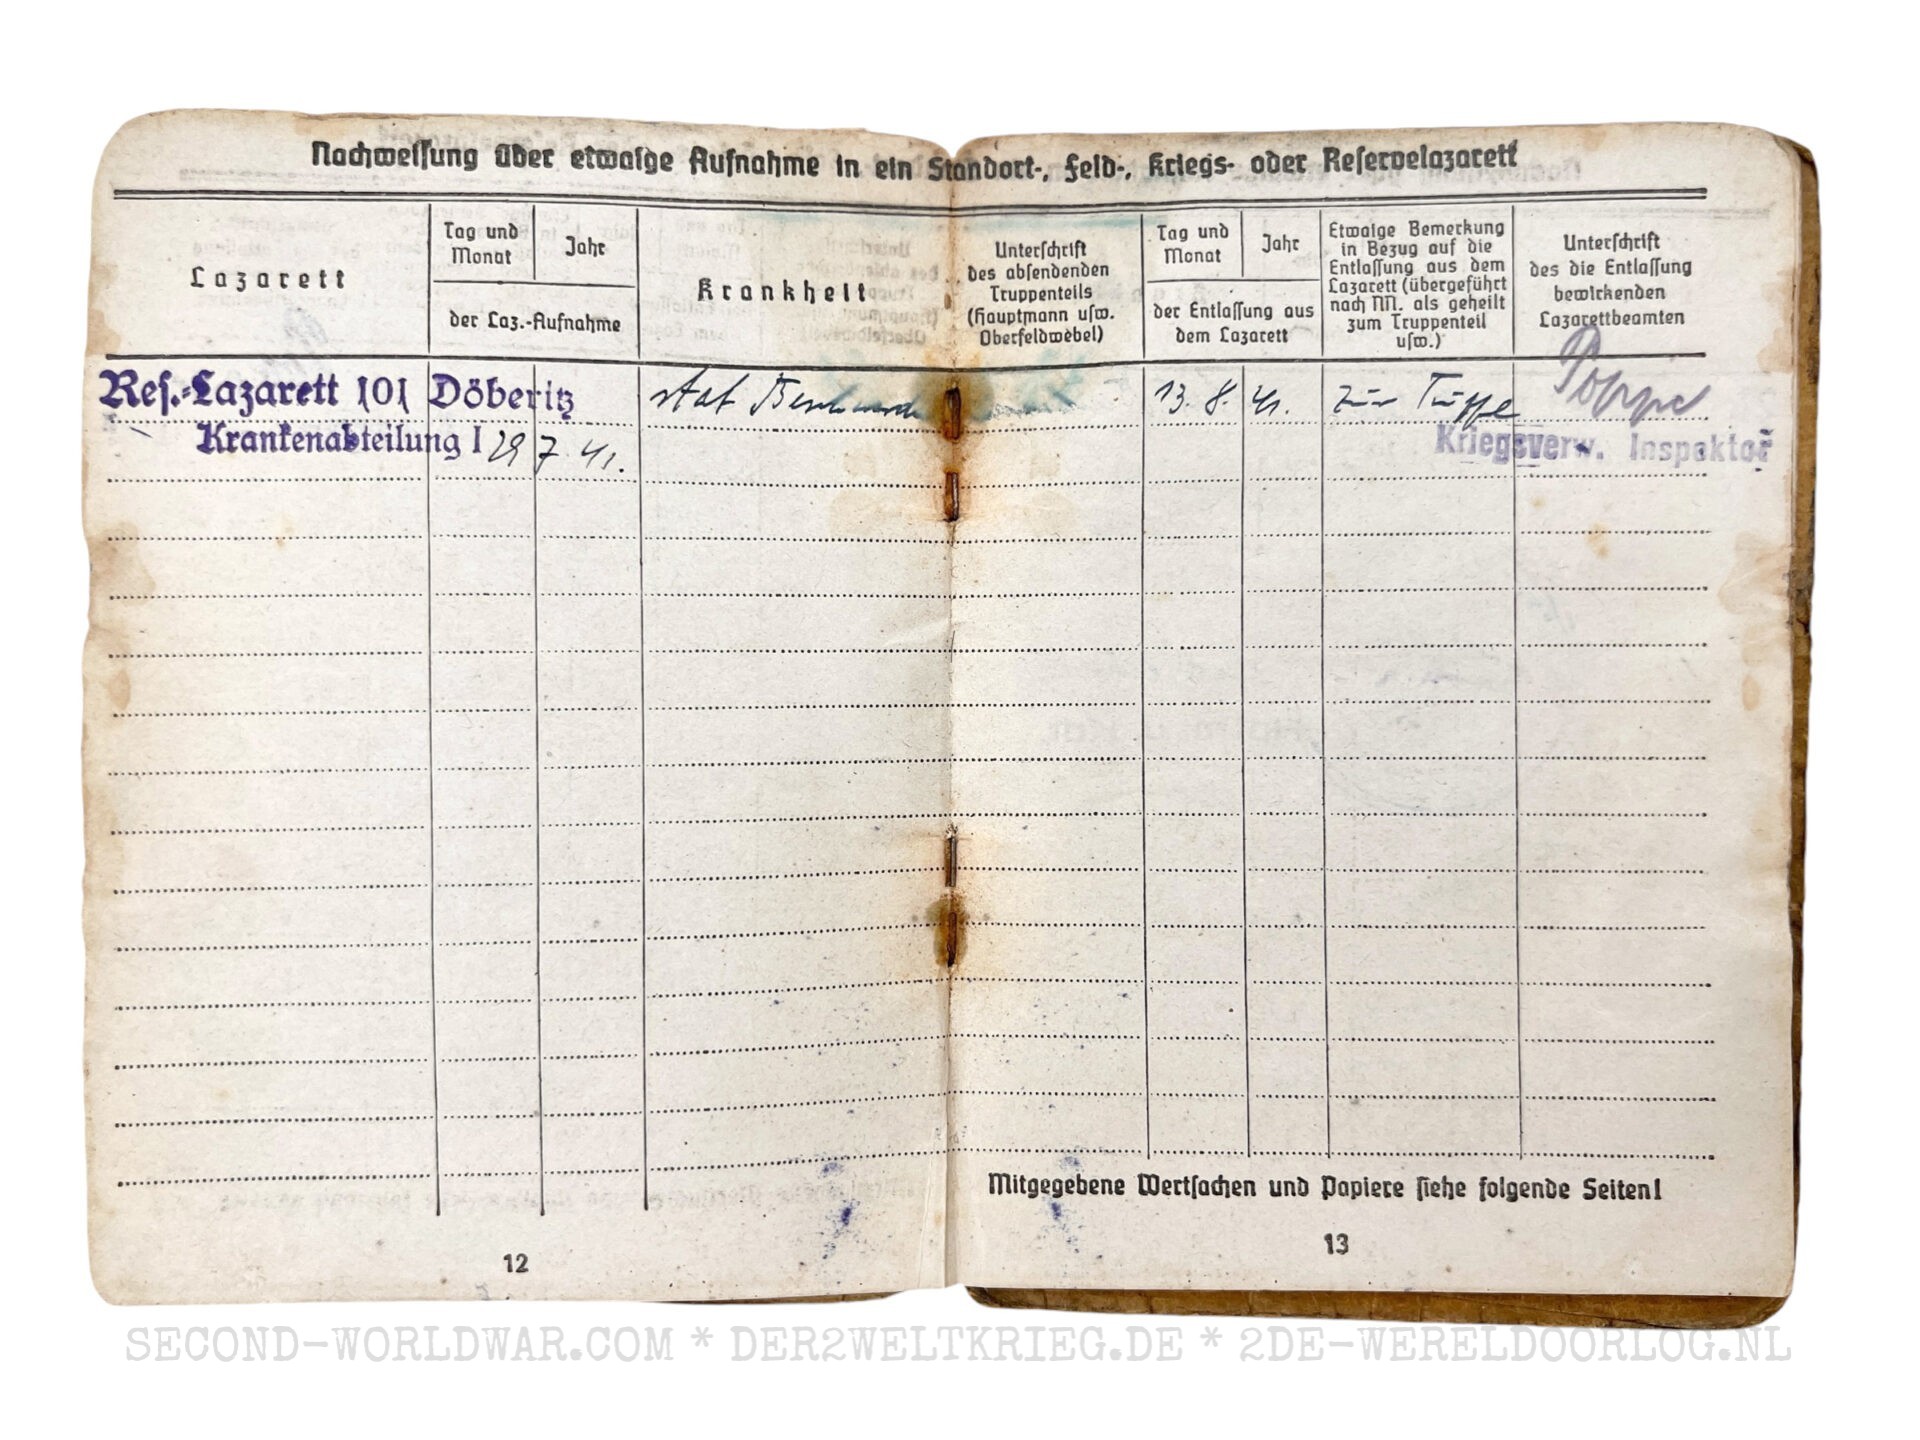 Nachweisung über etwaige Aufnahme in ein Standort-, Feld-, Kriegs- oder Reservelazarett
Lazarett
Tag und
Monat
Jahr
der Laz.-Aufnahme
Krankheit
Unterschrift
des absendenden
Truppenteils
(Hauptmann usw.
Oberfeldwebel)
Tag und
Monat
Jahr
der Entlassung aus
dem Lazarett
Etwaige Bemerkung
in Bezug auf die
Entlassung aus dem
Lazarett (übergeführt
nach NN. als geheilt
zum Truppenteil
usw.)
Unterschrift
des die Entlassung
bewirkenden
Lazarettbeamten
Res.-Lazarett 101 Döberitz
13. 8. 41. zur Truppe
Krankenabteilung I 29 7 41.
Kriegsverw. Inspektor
Mitgegebene Wertsachen und Papiere siehe folgende Seiten!
12
13
SECOND-WORLDWAR.COM * DER2WELTKRIEG.DE * 2DE-WERELDOORLOG.NL